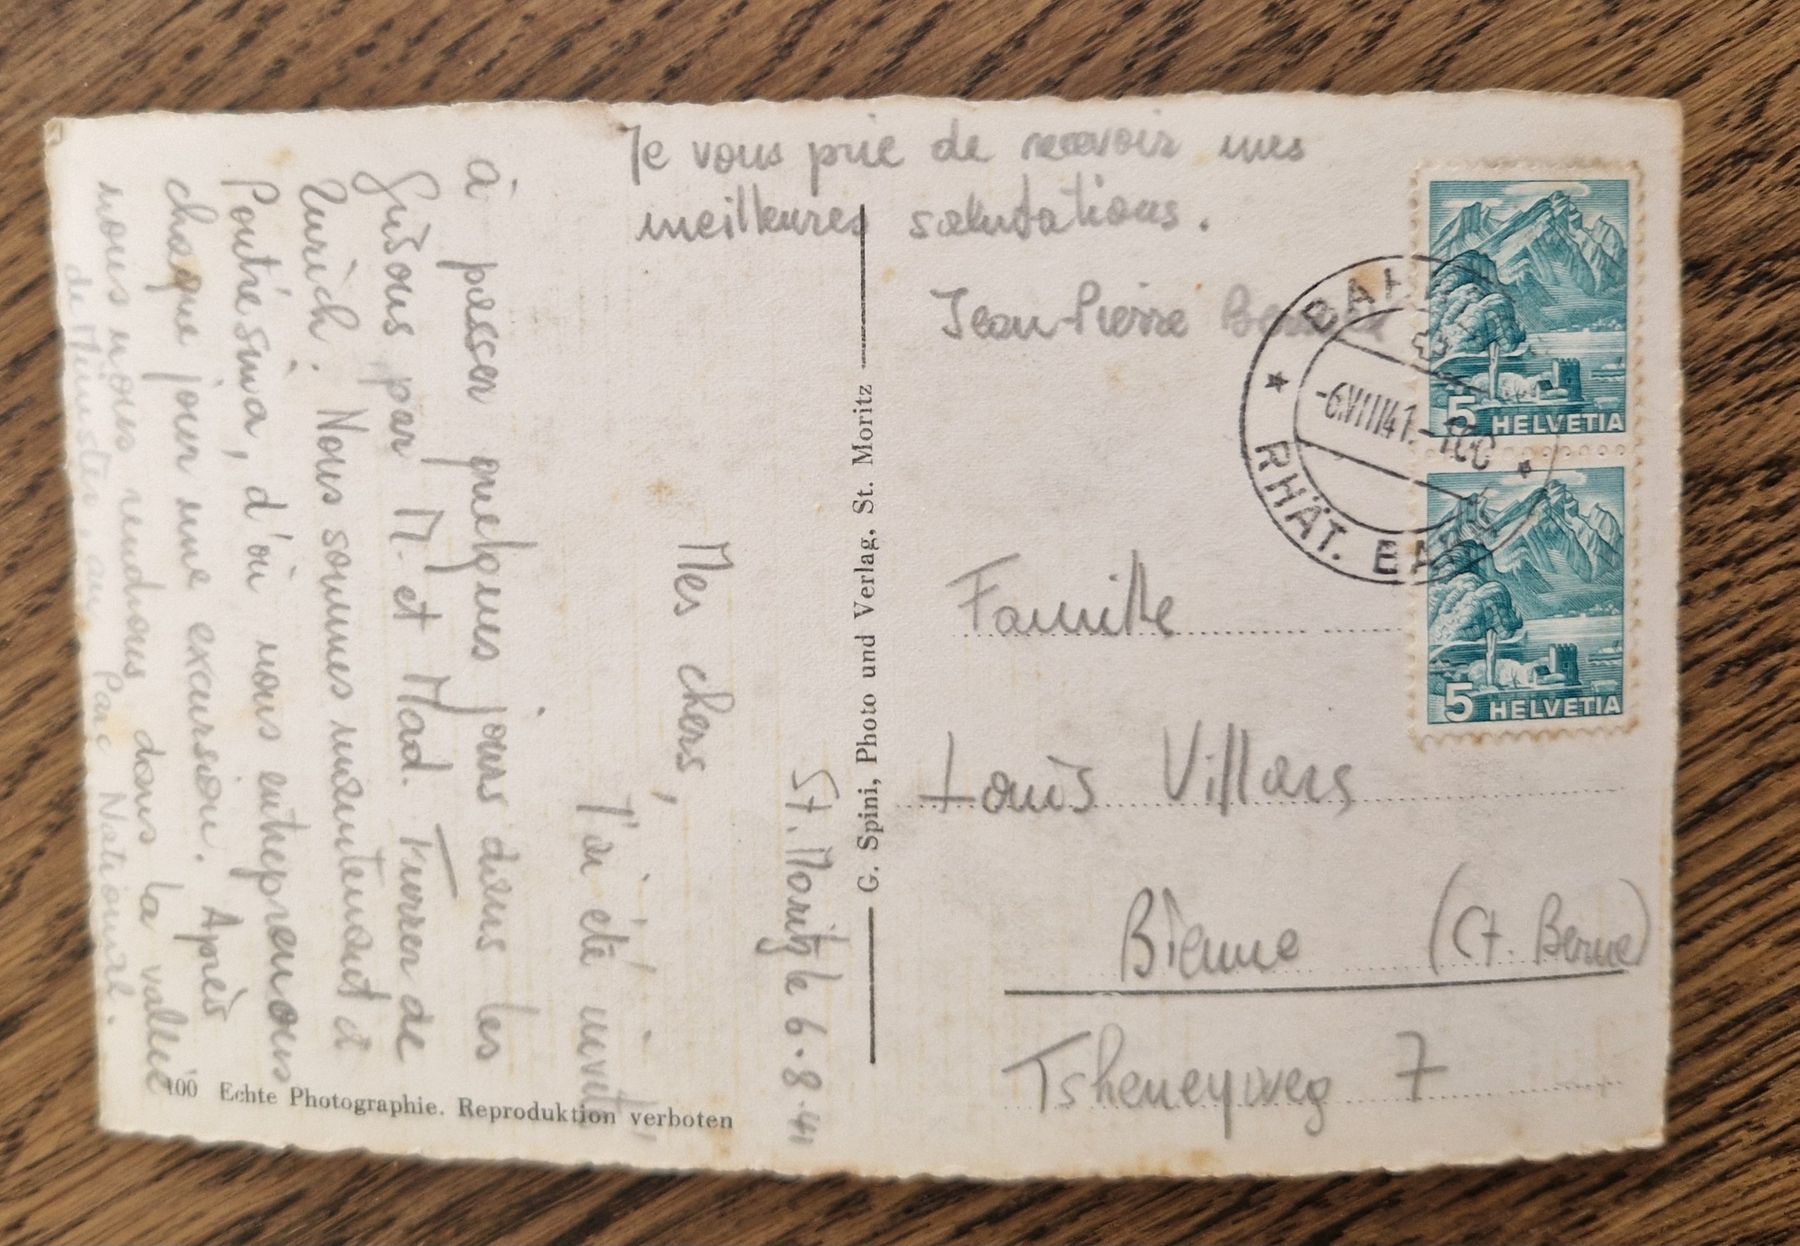 St. Moritz le 6.8.41
Mes chers,
J'ai été invité,
à passer quelques jours dans les
Grisons par M. et Mad. Furrer de
Zurich. Nous sommes maintenant à
Pontrésina, d'où nous entreprenons
chaque jour une excursion. Après
nous nous rendrons dans la vallée
de Münster, au Parc National.
Je vous prie de recevoir mes
meilleures salutations.
Jean-Pierre
G. Spini, Photo und Verlag, St. Moritz
BAHN
-6.VIII41.-
RHÄT. BAHN
5 HELVETIA
5 HELVETIA
Famille
Louis Villars
Bienne (Ct. Berne)
Tsheneyweg 7
100 Echte Photographie. Reproduktion verboten